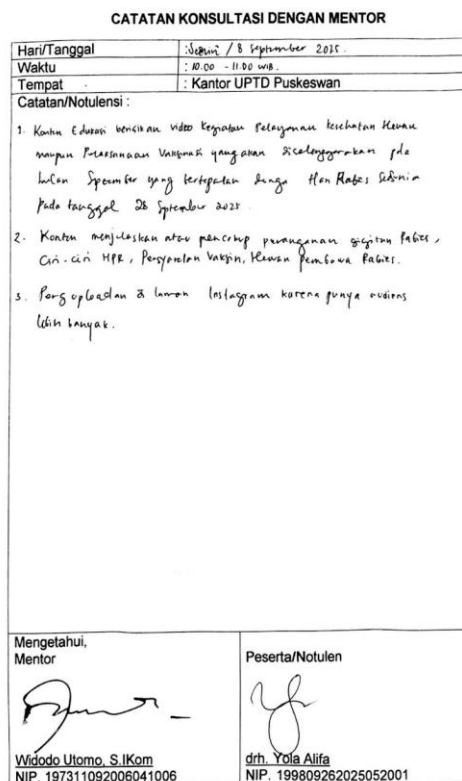 CATATAN KONSULTASI DENGAN MENTOR
Hari/Tanggal : Senin / 8 September 2025.
Waktu : 10.00 - 11.00 WIB.
Tempat : Kantor UPTD Puskeswan
Catatan/Notulensi :
1. Konten Edukasi berisikan video kegiatan Pelayanan kesehatan Hewan
maupun Pelaksanaan Vaksinasi yang akan diselenggarakan pda
bulan yang bertepatan Hari Rabies Sedunia
Pada tanggal 28 September 2025.
2. Konten menjelaskan atau mencakup penanganan gigitan Rabies,
Ciri-ciri HPR, Persyaratan Vaksin, Hewan Pembawa Rabies.
3. di laman Instagram karena punya audiens
lebih banyak.
Mengetahui,
Mentor
Peserta/Notulen
Widodo Utomo, S.IKom
NIP. 197311092006041006
drh. Yola Alifa
NIP. 199809262025052001